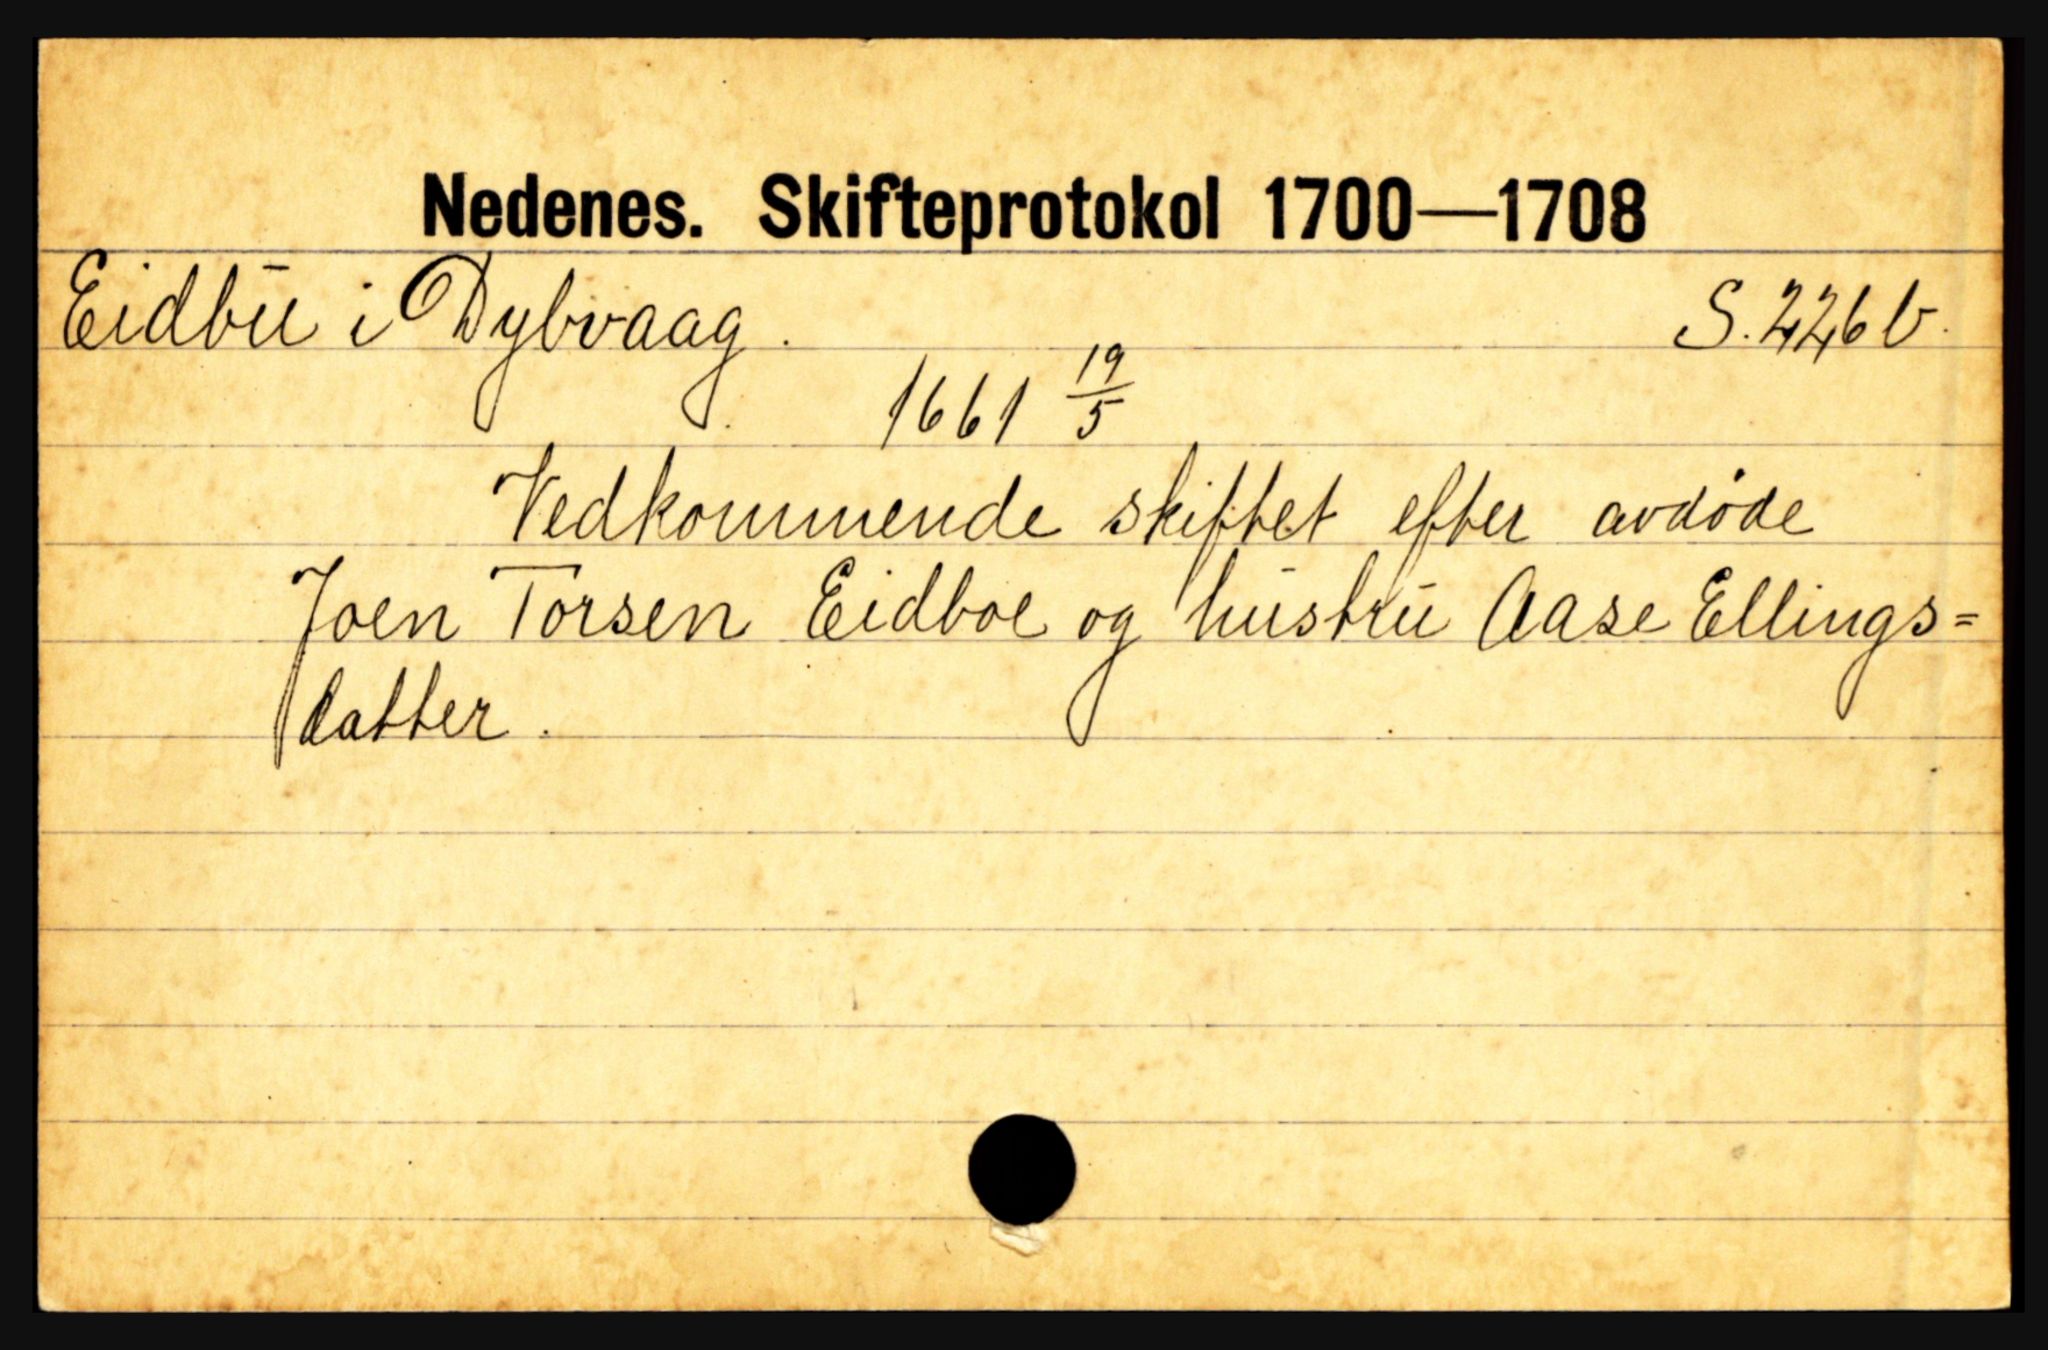 Nedenes. Skifteprotokol 1700—1708
Eidbu i Dybvaag. S. 226 b.
1661 19/5
Vedkommende skiftet efter avdøde
Joen Torsen Eidboe og hustru Aase Ellings=
datter.